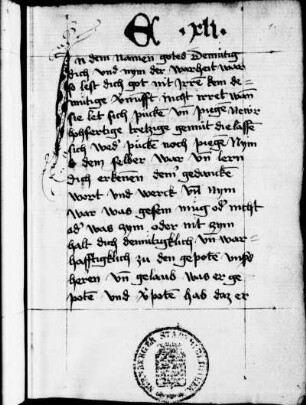 E .xli.
In dem namen gotes Demütig
dich und nym der warheit war
so lest dich got nit irre kein de=
mütige v̄nufft nicht irret wan
sie let sich pücke vn̄ piege
hohfertige gemüt die lasse
sich wed' pücke noch piege Nym
dem selber war vn̄ lern
dich erkenen dem' gedancke
wort und werck vn̄ nym
war was gesein müg od' nicht
od' was zym oder nit zym
halt dich demütigklich vn̄ war=
hafftigklich zu den gepote vnsers
heren vn̄ gelaub was er ge=
pote und v̄pote has daz er